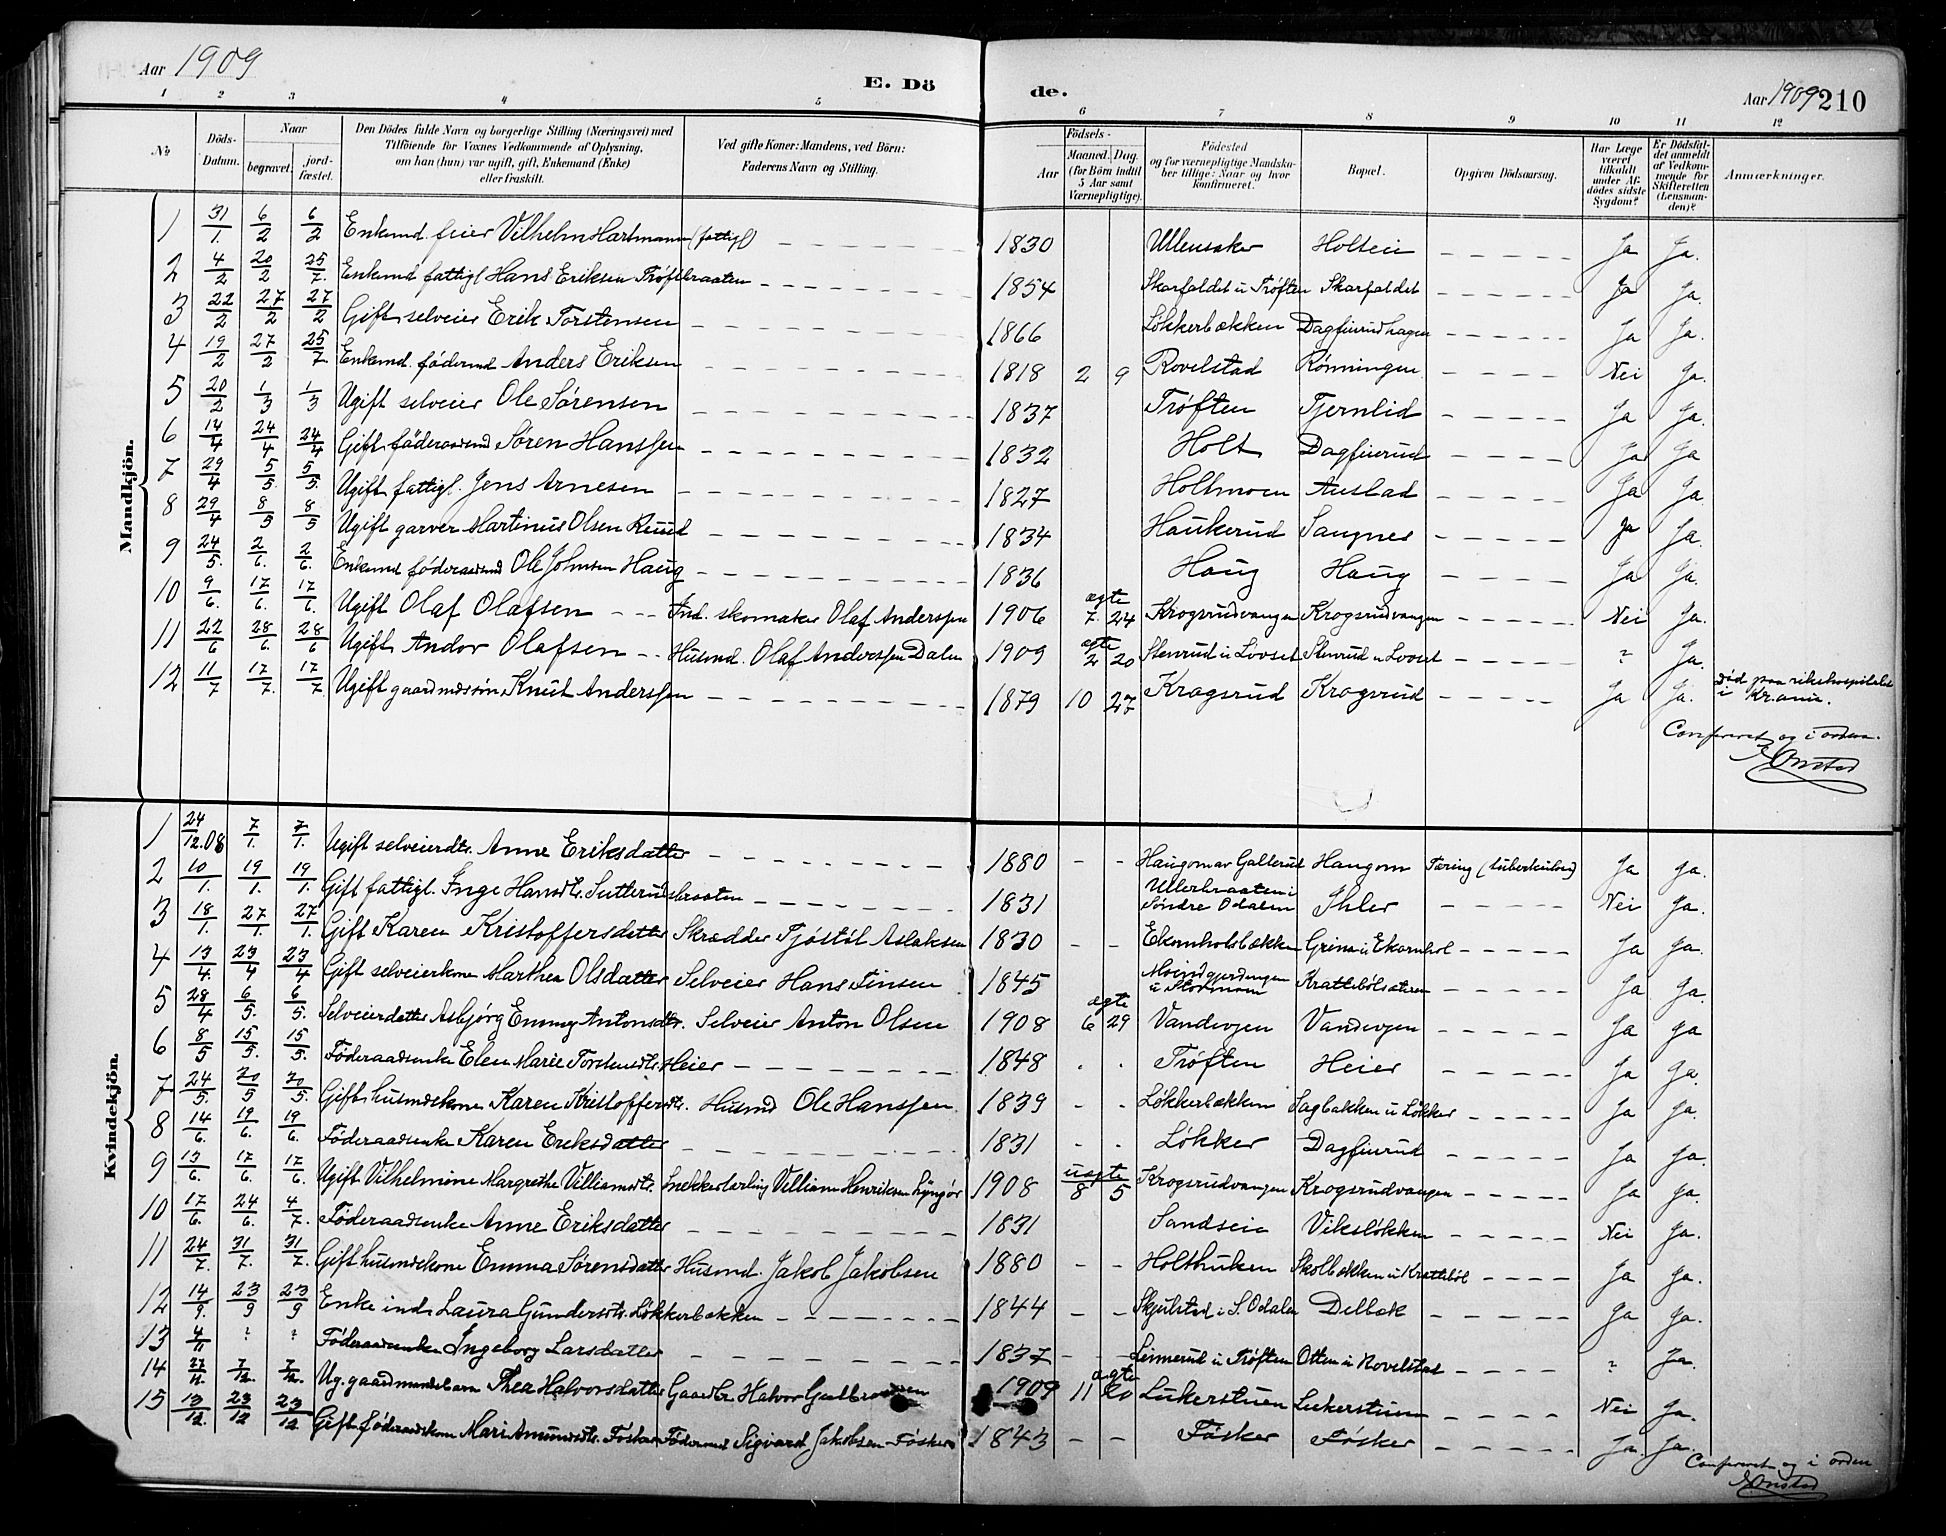 Aar 1909
E. Dö
de.
Aar 1909 210
1 2 3 4 5 6 7 8 9 10 11 12
№
Döds-Datum.
Naar
begravet.
jord-fæstet.
Den Dödes fulde Navn og borgerlige Stilling (Næringsvei) med
Tilföiende for Voxnes Vedkommende af Oplysning,
om han (hun) var ugift, gift, Enkemand (Enke)
eller fraskilt.
Ved gifte Koner: Mandens, ved Börn:
Faderens Navn og Stilling.
Födsels-
Aar
Maaned. Dag.
(for Börn indtil
5 Aar samt
Værnepligtige).
Födested
og for værnepligtige Mandska-
ber tillige: Naar og hvor
konfirmeret.
Bopæl.
Opgiven Dödsaarsag.
Har Læge
været
tilkaldt
under Af-
dödes sidste
Sygdom?
Er Dödsfal-
det anmeldt
af Vedkom-
mende for
Skifteretten
(Lensman-
den)?
Anmærkninger.
Mandkjön.
1 31/1. 6/2 6/2 Enkemd. feier Vilhelm Hartmann (fattigl) 1830 Ullensaker Holseii Ja Ja.
2 4/2 20/2 25/7. Enkemd fattigl Hans Eriksen Trøftbraaten 1854 Skarfaldet u Trøften Skarfaldet Ja Ja.
3 22/2 27/2 27/2 Gift selveier Erik Torstensen 1866 Løkkerbækken Dagfinrudhagen Ja Ja.
4 19/2 27/2 25/7 Enkemd. fødermd Anders Eriksen 1818 2 9 Rovelstad Rønningen Nei Ja.
5 20/2 1/3 1/3 Ugift selveier Ole Sørensen 1837 Trøften Tjernlid Ja Ja.
6 14/4 24/4 24/4 Gift føderaadsmd Søren Hanssen 1832 Holt Dagfinrud Ja Ja
7 29/4 5/5 5/5. Ugift fattigl. Jens Arnesen 1827 Holtmoen Austad Ja Ja.
8 29/4 8/5 8/5 Ugift garver Martinus Olsen Ruud 1834 Haukerud Saugnes Ja Ja.
9 24/5. 2/6. 2/6. Enkemd føderaadsmd Ole Johnsen Haug 1836 Haug Haug Ja Ja.
10 9/6. 17/6. 17/6. Ugift Olaf Olafsen Ind. skomaker Olaf Anderssen 1906 ægte 7. 24 Krogsrudvangen Krogsrudvangen Nei Ja.
11 22/6 28/6. 28/6 Ugift Andor Olafsen Husmd. Olaf Anderssen Dalen 1909 ægte 2 20 Stenrud u Lovset Stenrud u Lovset ? Ja.
12 11/7 17/7. 17/7. Ugift gaardmdssøn Knut Anderssen 1879 10 27 Krogsrud Krogsrud Ja Ja. Død paa rikshospitalet
i Kr.ania.
Confereret og i orden.
E Onstad
Kvindekjön.
1 24/12.08 7/1. 7/1. Ugift selveierdtr. Anne Eriksdatter 1880 - - Haugomav Gallerud Haugom Tæring (tuberkulose) Ja Ja.
2 10/1. 19/1. 19/1. Gift fattigl. Inge Hansdtr. Sutterudsbraaten 1831 Ullerbraaten i
Søndre Odalen Ihler Nei Ja.
3 18/1. 27/1. 27/1. Gift Karen Kristoffersdatter Skrædder Tjøstøl Aslaksen 1830 - - Ekornholsbækken Grina u Ekornhol Ja Ja.
4 13/4. 23/4 23/4 Gift selveierkone Marthea Olsdatter Selveier Hans Finsen 1845 Krattebølsæteren Ja Ja.
5 28/4 6/5. 6/5. Selveierdatter Asbjørg Emmy Antonsdtr. Selveier Anton Olsen 1908 ægte 6 29 Vandevjen Vandevjen Ja Ja
6 8/5 15/5. 15/5. Føderaadsenke Elen Marie Torstensdtr. Heier 1848 Trøften Heier Ja Ja.
7 24/5. 30/5 30/5. Gift husmdskone Karen Kristoffersdtr. Husmd Ole Hanssen 1839 - - Løkkerbækken Sagbakken u Løkker Ja Ja.
8 14/6. 19/6. 19/6. Føderaadsenke Karen Eriksdatter 1831 - - Løkker Dagfinrud Ja Ja.
9 13/6. 17/6. 17/6. Ugift Vilhelmine Margrethe Villiamsdtr. Snekkerlærling Villiam Henriksen Lyngør 1908 uægte 8 5 Krogsrudvangen Krogsrudvangen Ja Ja.
10 17/6. 24/6. 4/7. Føderaadsenke Anne Eriksdatter 1831 Sandseie Viksløkken Nei Ja.
11 24/7. 31/7. 31/7. Gift husmdskone Emma Sørensdatter Husmd. Jakob Jakobsen 1880 - - Holthuken Skolbækken u Krattebøl Ja Ja.
12 14/9. 23/9 23/9 Enke ind. Laura Gundersdtr. Løkkerbækken 1844 - - Skjulstad i S. Odalen Delbæk Ja Ja.
13 4/11 ? ? Føderaadsenke Ingeborg Larsdatter 1837 - - Linnerud u Trøften Otten u Rovelstad ? Ja.
14 27/11. 7/12. 7/12. Ug. gaardmandsbarn Thea Halvorsdatter Gaardbr. Halvor Gulbrandsen 1909 ægte 11 20 Lukerstuen Lukerstuen Nei Ja.
15 13/12. 23/12 23/12 Gift føderaadskone Mari Amundsdtr. Fosker Fødermd Sigvard Jakobsen Føsker 1843 - - Føsker Føsker Ja. Ja.
Confereret og i orden
E Onstad